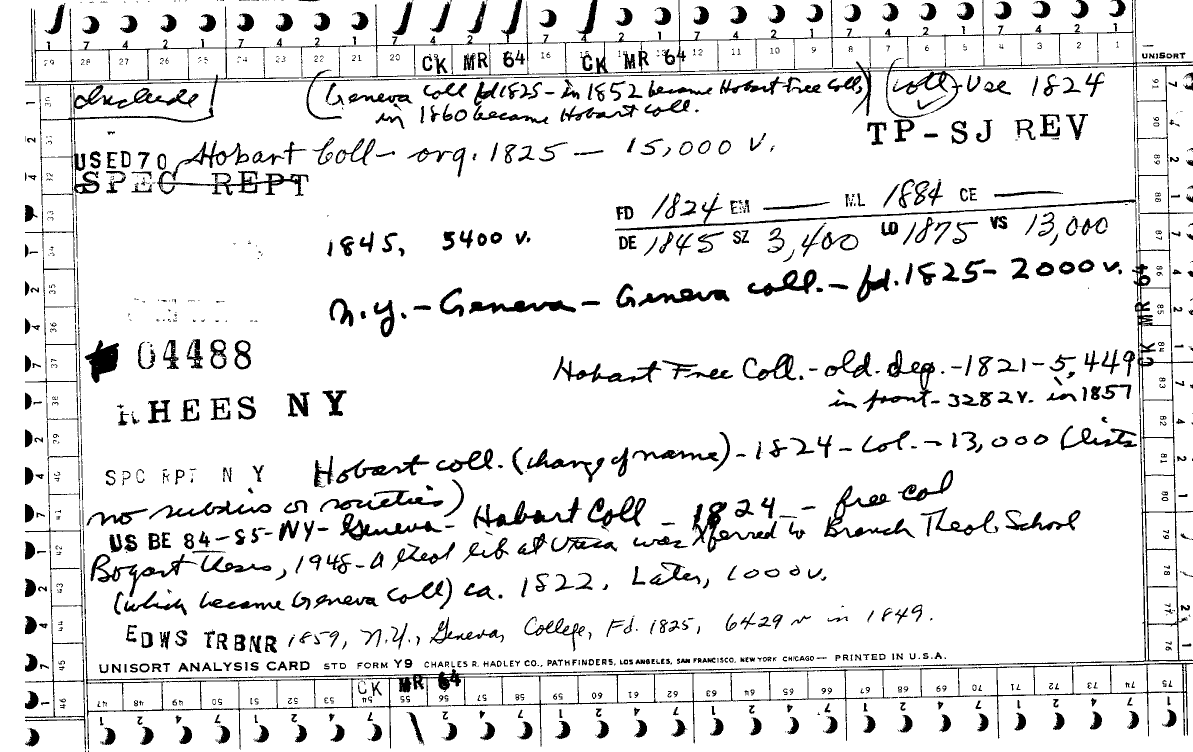 7 4 2 1 7 4 2 1 7 4 2 1 7 4 2 1 7 4 2 1 7 4 2 1
29 28 27 26 25 24 23 22 21 20 CK MR 64 16 CK MR 64 12 11 10 9 8 7 6 5 4 3 2 1 UNISORT
Include! (Geneva Coll fd 1825 - in 1852 became Hobart Free Coll, (Coll) - Use 1824
in 1860 became Hobart Coll.)
TP-SJ REV
USED70 Hobart Coll - org. 1825 - 15,000 v.
SPEC REPT
FD 1824 EM — ML 1884 CE —
1845, 5400 v. DE 1845 SZ 3,400 LD 1875 VS 13,000
N.Y. - Geneva - Geneva coll. - fd. 1825 - 2000 v.
04488
Hobart Free Coll. - old. deg. - 1821 - 5,449
in front - 3282 v. in 1857
RHEES NY
SPC RPT N Y Hobart coll. (change of name) - 1824 - Col. - 13,000 (lists
no subdivs or societies)
US BE 84-85 - NY - Geneva - Hobart Coll - 1824 - free col
Bogart thesis, 1948 - A theol lib at Utica was Xferred to Branch Theol. School
(which became Geneva Coll) ca. 1822. Later, 1000 v.
EDWS TRBNR 1859, N.Y., Geneva, College, Fd. 1825, 6429 v in 1849.
UNISORT ANALYSIS CARD STD FORM Y9 CHARLES R. HADLEY CO., PATHFINDERS, LOS ANGELES, SAN FRANCISCO, NEW YORK CHICAGO — PRINTED IN U.S.A.
CK MR 64
CK MR 64